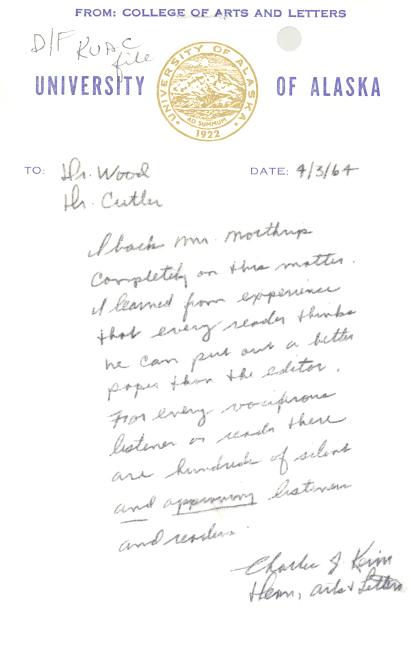 FROM: COLLEGE OF ARTS AND LETTERS
D/F KUAC
file
UNIVERSITY OF ALASKA
UNIVERSITY OF ALASKA
AD SUMMUM
1922
TO: Dr. Wood
DATE: 4/3/64
Dr. Cutler
I back Mr. Northrip
completely on this matter.
I learned from experience
that every reader thinks
he can put out a better
paper than the editor.
For every vociferous
listener or reader there
are hundreds of silent
and approving listeners
and readers.
Charles J Keim
Dean, Arts & Letters